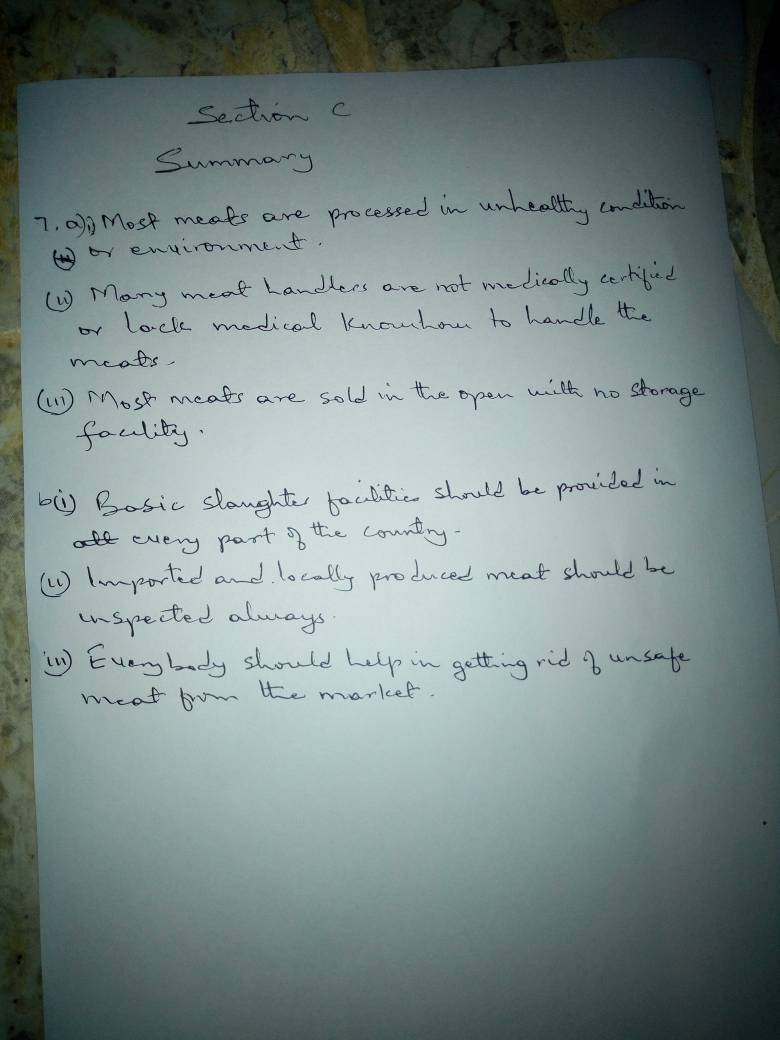 Section C
Summary
7. a)i) Most meats are processed in unhealthy condition
or environment.
(ii) Many meat handlers are not medically certified
or lack medical knowhow to handle the
meats.
(iii) Most meats are sold in the open with no storage
facility.
b(i) Basic slaughter facilities should be provided in
all every part of the country.
(ii) Imported and locally produced meat should be
inspected always.
iii) Everybody should help in getting rid of unsafe
meat from the market.